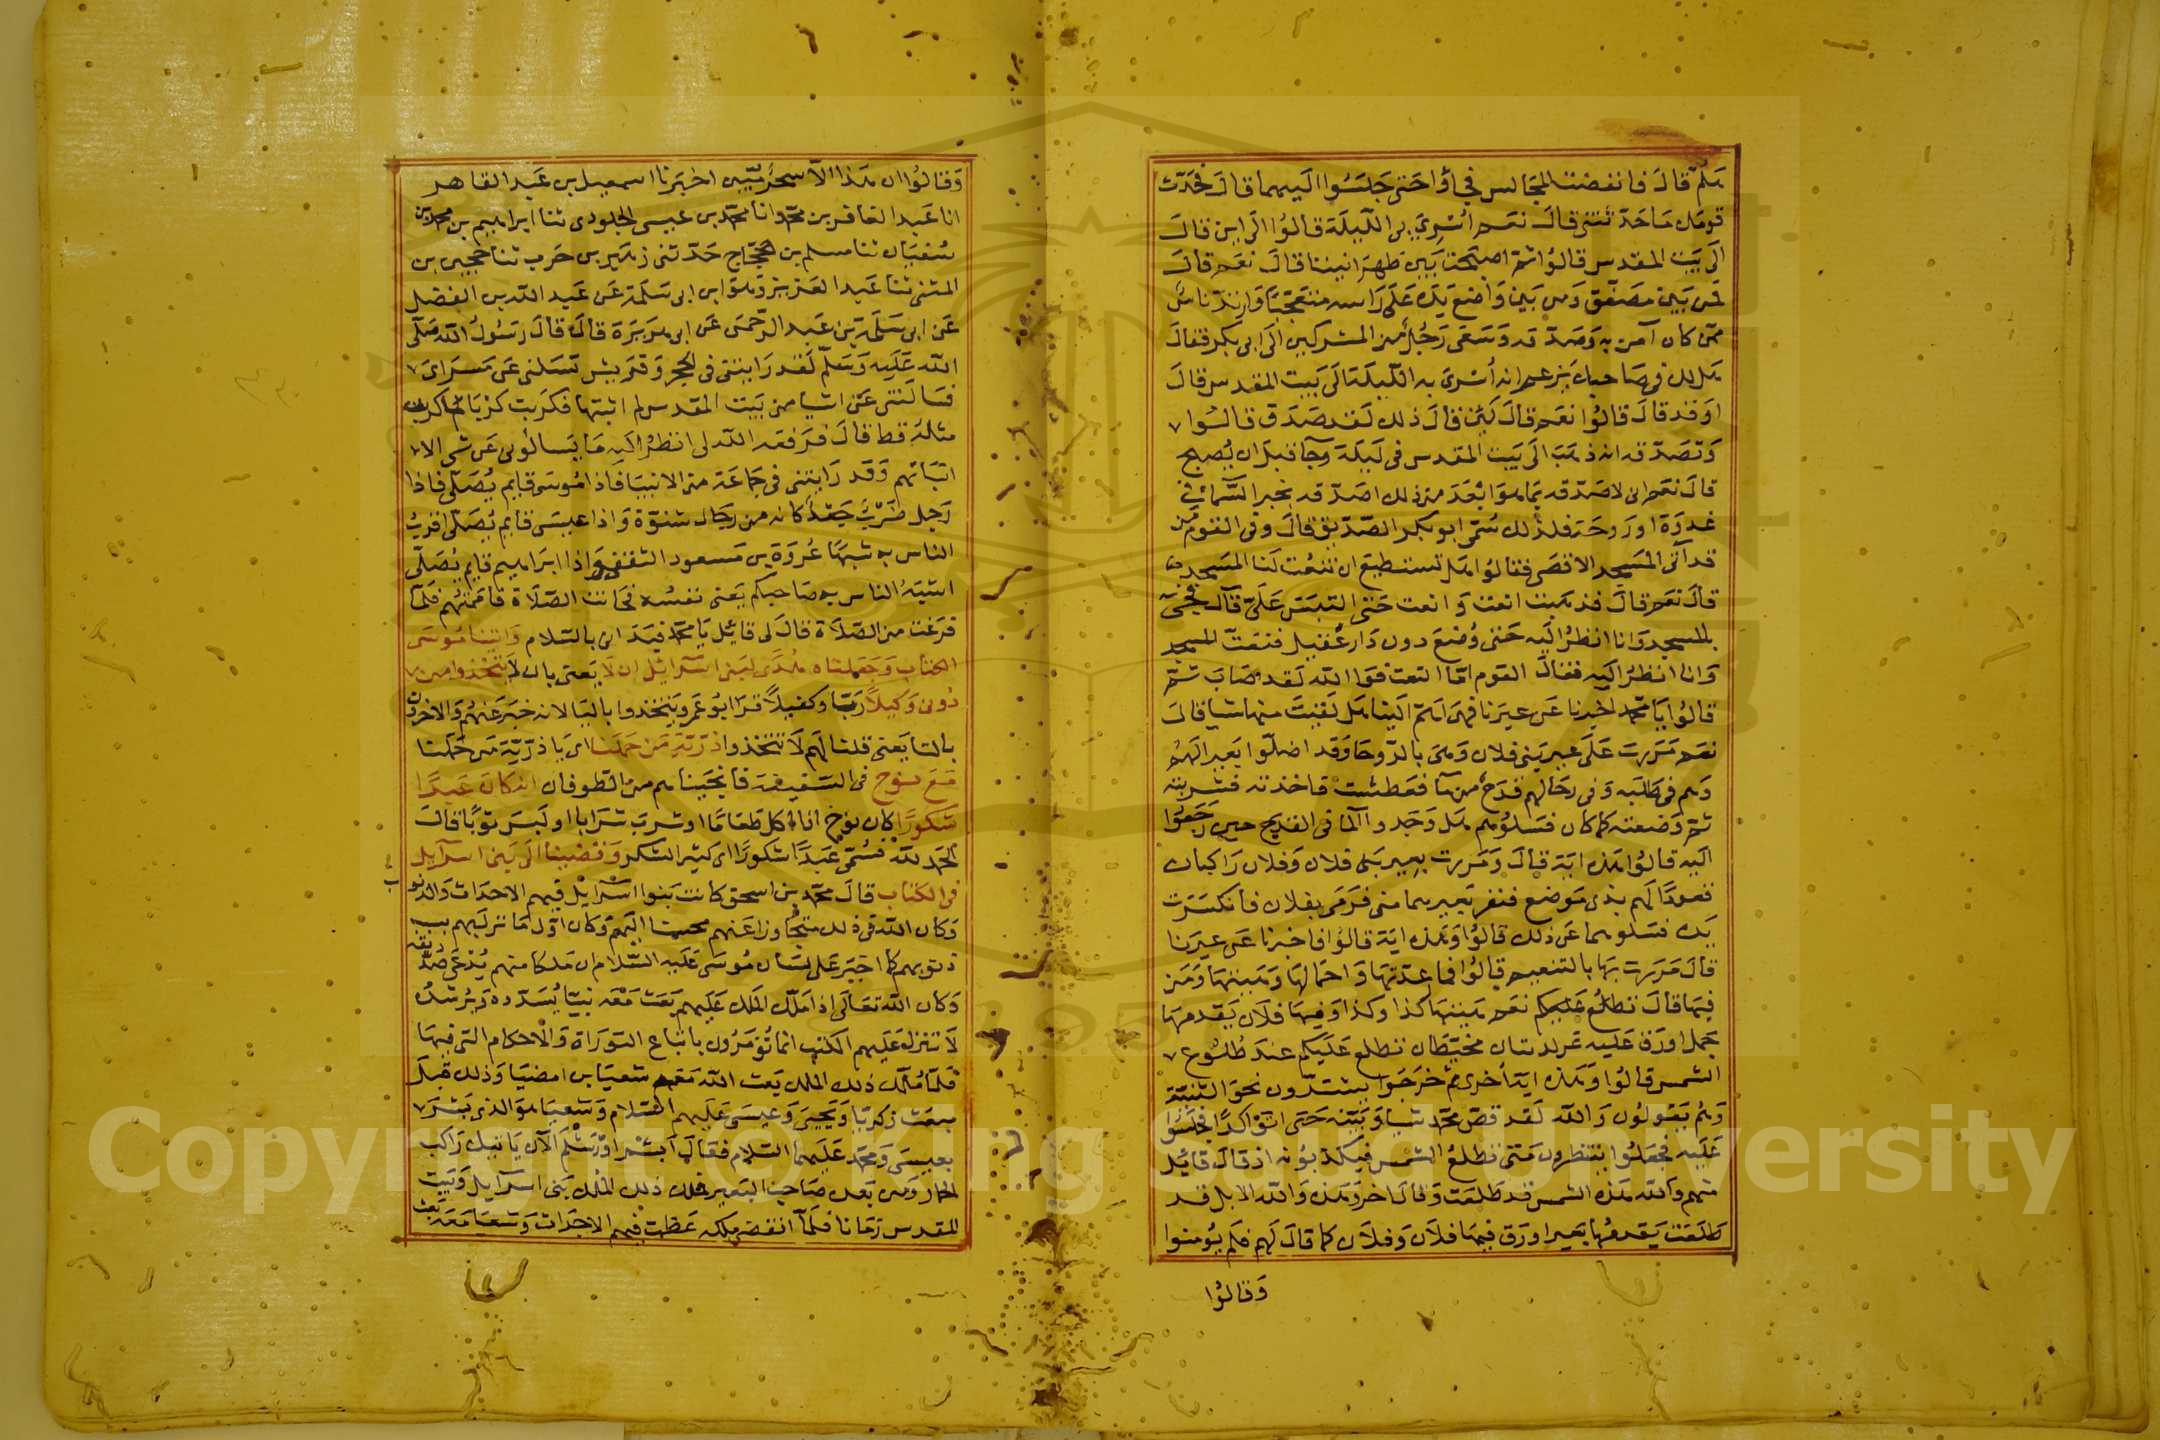 هلم قال فانفضت المجالس فجاؤا حتى جلسوا اليهما قال فحدث
قومك ما حدثتني قال نعم اسري بي الليلة قالوا الى اين قال
الى بيت المقدس قالوا ثم اصبحت بين ظهرانينا قال نعم قال
فمن بين مصفق ومن بين واضع يده على راسه متعجبا وارتد ناس
ممن كان آمن به وصدقه وسعى رجل من المشركين الى ابي بكر فقال
هل لك في صاحبك يزعم انه أسري به الليلة الى بيت المقدس قال
اوقد قال قالوا نعم قال لئن قال ذلك لقد صدق قالوا
وتصدقه انه ذهب الى بيت المقدس في ليلة وجآ قبل ان يصبح
قال نعم اني لاصدقه بما هو ابعد من ذلك اصدقه بخبر السمآء في
غدوة او روحة فلذلك سمى ابو بكر الصديق قال وفي القوم من
قد آتى المسجد الاقصى فقالوا هل تستطيع ان تنعت لنا المسجد
قال نعم قال فذهبت انعت وانعت حتى التبس علي قال فجئ
بالمسجد وانا انظر اليه حتى وضع دون دار عقيل فنعت المسجد
وانا انظر اليه فقال القوم اما النعت فوالله لقد اصاب ثم
قالوا يا محمد اخبرنا عن عيرنا فهي اهم الينا هل لقيت منها شيا قال
نعم مررت على عير بني فلان وهي بالروحا وقد اضلوا بعيرا لهم
وهم في طلبه وفي رحالهم قدح من مآ فعطشت فاخذته فشربته
ثم وضعته كما كان فسلوهم هل وجدوا المآ في القدح حين رجعوا
اليه قالوا هذه اية قال ومررت بعير بني فلان وفلان راكبان
قعودا لهم بذي موضع فنفر بعيرهما مني فرمى بفلان فانكسرت
يده فسلوهما عن ذلك قالوا وهذه اية قالوا فاخبرنا عن عيرنا
قال مررت بها بالتنعيم قالوا فما عدتها واحمالها وهيئتها ومن
فيها قال نعم هيئتها كذا وكذا وفيها فلان يقدمها
جمل اورق عليه غرارتان مخيطتان تطلع عليكم عند طلوع
الشمس قالوا وهذه اية أخرى ثم خرجوا يشتدون نحو الثنية
وهم يقولون والله لقد قص محمد شيا وبينه حتى اتوا كدا فجلسوا
عليه فجعلوا ينتظرون متى تطلع الشمس فيكذبونه اذ قال قائل
منهم والله هذه الشمس قد طلعت وقال اخر وهذه والله الابل قد
طلعت يقدمها بعير اورق فيها فلان وفلان كما قال لهم فلم يؤمنوا
وقالوا
وقالوا ان هذا الا سحر مبين اخبرنا اسمعيل بن عبد القاهر
انا عبد الغافر بن محمد انا محمد بن عيسى الجلودي ثنا ابراهيم بن محمد بن
سفيان ثنا مسلم بن حجاج حدثني زهير بن حرب ثنا حجين بن
المثنى ثنا عبد العزيز وهو ابن ابي سلمة عن عبد الله بن الفضل
عن ابي سلمة بن عبد الرحمن عن ابي هريرة قال قال رسول الله صلى
الله عليه وسلم لقد رايتني في الحجر وقريش تسلني عن مسراي
فسالتني عن اشيا من بيت المقدس لم اثبتها فكربت كربا ما كربت
مثله قط قال فرفعه الله لي انظر اليه ما يسالوني عن شي الا
انباتهم وقد رايتني في جماعة من الانبيا فاذا موسى قايم يصلي فاذا
رجل ضرب جعد كانه من رجال شنؤة واذا عيسى قايم يصلي اقرب
الناس به شبها عروة بن مسعود الثقفي واذا ابراهيم قايم يصلي
اشبه الناس به صاحبكم يعني نفسه فحانت الصلاة فاممتهم فلما
فرغت من الصلاة قال لي قائل يا محمد فبداني بالسلام واتينا موسى
الكتاب وجعلناه هدى لبني اسرائيل ان لا يعني بان لا تتخذوا من
دوني وكيلا ربا وكفيلا قرا ابو عمرو يتخذوا باليا لانه خبر عنهم والاخرون
بالتا يعني قلنا لهم لا تتخذوا ذرية من حملنا اي يا ذرية من حملنا
مع نوح في السفينة فانجيناهم من الطوفان انه كان عبدا
شكورا كان نوح اذا اكل طعاما او شرب شرابا او لبس ثوبا قال
الحمد لله فسمى عبدا شكورا اي كثير الشكر وقضينا الى بني اسرآيل
في الكتاب قال محمد بن اسحق كانت بنوا اسرآيل فيهم الاحداث والذنوب
وكان الله في ذلك متجاوزا عنهم محسنا اليهم وكان اول ما نزل بهم بسبب
ذنوبهم كما اخبر على لسان موسى عليه السلام ان ملكا منهم يدعى صديقه
وكان الله تعالى اذا ملك الملك عليهم بعث معه نبيا يسدده ويرشده
لا تنزل عليهم الكتب انما تؤمرون باتباع التوراة والاحكام التي فيها
فلما ملك ذلك الملك بعث الله معه شعيا بن امضيا وذلك قبل
مبعث زكريا ويحيى وعيسى عليهم السلام وشعيا هو الذي بشر
بعيسى ومحمد عليهما السلام فقال ابشر اورشلم الان ياتيك راكب
الحمار ومن بعده صاحب البعير فملك ذلك الملك بني اسرآيل وبيت
المقدس زمانا فلما انقضى ملكه عظمت فيهم الاحداث وشعيا معه بعث
Copyright © King Saud University
1957